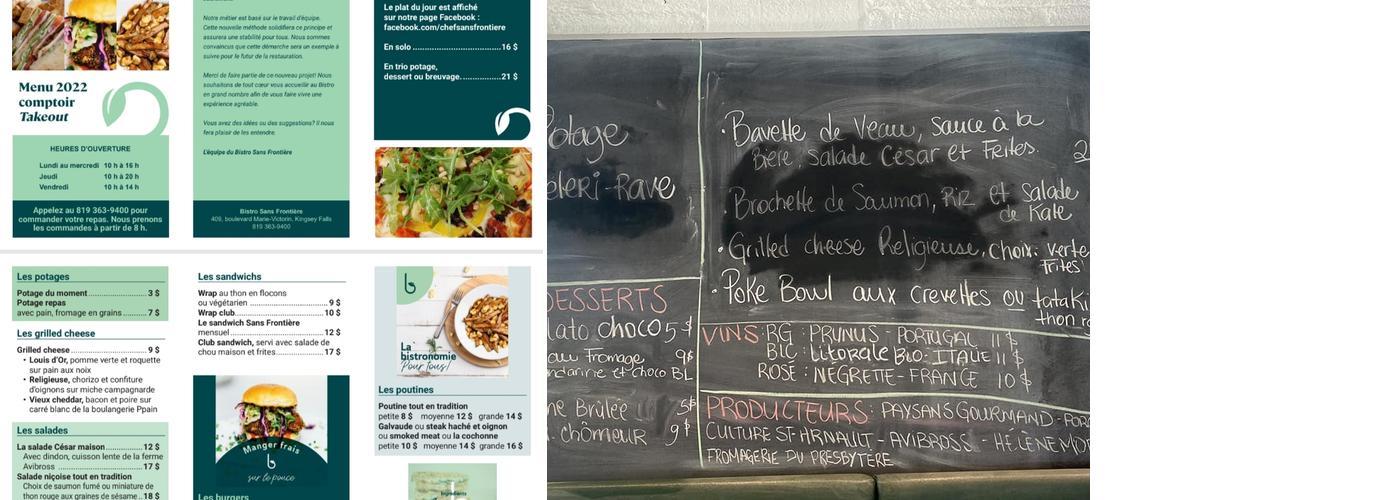 Notre métier est basé sur le travail d'équipe.
Cette nouvelle méthode solidifiera ce principe et
assurera une stabilité pour tous. Nous sommes
convaincus que cette démarche sera un exemple à
suivre pour le futur de la restauration.
Merci de faire partie de ce nouveau projet! Nous
souhaitons de tout cœur vous accueillir au Bistro
en grand nombre afin de vous faire vivre une
expérience agréable.
Vous avez des idées ou des suggestions? Il nous
fera plaisir de les entendre.
L'équipe du Bistro Sans Frontière
Bistro Sans Frontière
409, boulevard Marie-Victorin, Kingsey Falls
819 363-9400
Menu 2022
comptoir
Takeout
HEURES D'OUVERTURE
Lundi au mercredi 10 h à 16 h
Jeudi 10 h à 20 h
Vendredi 10 h à 14 h
Appelez au 819 363-9400 pour
commander votre repas. Nous prenons
les commandes à partir de 8 h.
Le plat du jour est affiché
sur notre page Facebook :
facebook.com/chefsansfrontiere
En solo ........................... 16 $
En trio potage,
dessert ou breuvage. ............... 21 $
Les potages
Potage du moment ................... 3 $
Potage repas
avec pain, fromage en grains ....... 7 $
Les grilled cheese
Grilled cheese ..................... 9 $
• Louis d'Or, pomme verte et roquette
sur pain aux noix
• Religieuse, chorizo et confiture
d'oignons sur miche campagnarde
• Vieux cheddar, bacon et poire sur
carré blanc de la boulangerie Ppain
Les salades
La salade César maison ............. 12 $
Avec dindon, cuisson lente de la ferme
Avibross ........................... 17 $
Salade niçoise tout en tradition
Choix de saumon fumé ou miniature de
thon rouge aux graines de sésame ... 18 $
Les sandwichs
Wrap au thon en flocons
ou végétarien ...................... 9 $
Wrap club .......................... 10 $
Le sandwich Sans Frontière
mensuel ............................ 12 $
Club sandwich, servi avec salade de
chou maison et frites .............. 17 $
Manger frais
sur le pouce
Les burgers
La
bistronomie
Pour tous!
Les poutines
Poutine tout en tradition
petite 8 $ moyenne 12 $ grande 14 $
Galvaude ou steak haché et oignon
ou smoked meat ou la cochonne
petite 10 $ moyenne 14 $ grande 16 $
Ingrédients
Potage
Céleri-Rave
DESSERTS
choco 5 $
Fromage 9 $
et choco BL
Brûlée 5 $
chômeur 9 $
• Bavette de Veau, Sauce à la
Bière, Salade César et Frites.
• Brochette de Saumon, Riz et Salade
de Kale
• Grilled cheese Religieuse, choix: verte
Frites
• Poke Bowl aux Crevettes ou tataki
thon
VINS: RG : PRUNUS - PORTUGAL 11 $
BLC : Litorale BIO - ITALIE 11 $
ROSE : NEGRETTE - FRANCE 10 $
PRODUCTEURS : PAYSANS GOURMAND -
CULTURE ST-ARNAULT - AVIBROSS - HÉLÈNE
FROMAGERIE DU PRESBYTÈRE